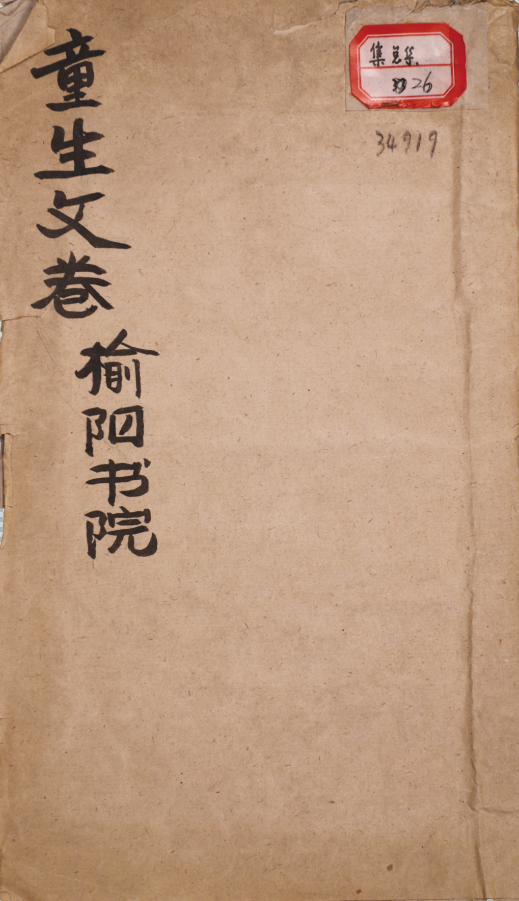 童生文卷
榆阳书院
集总类
26
34919